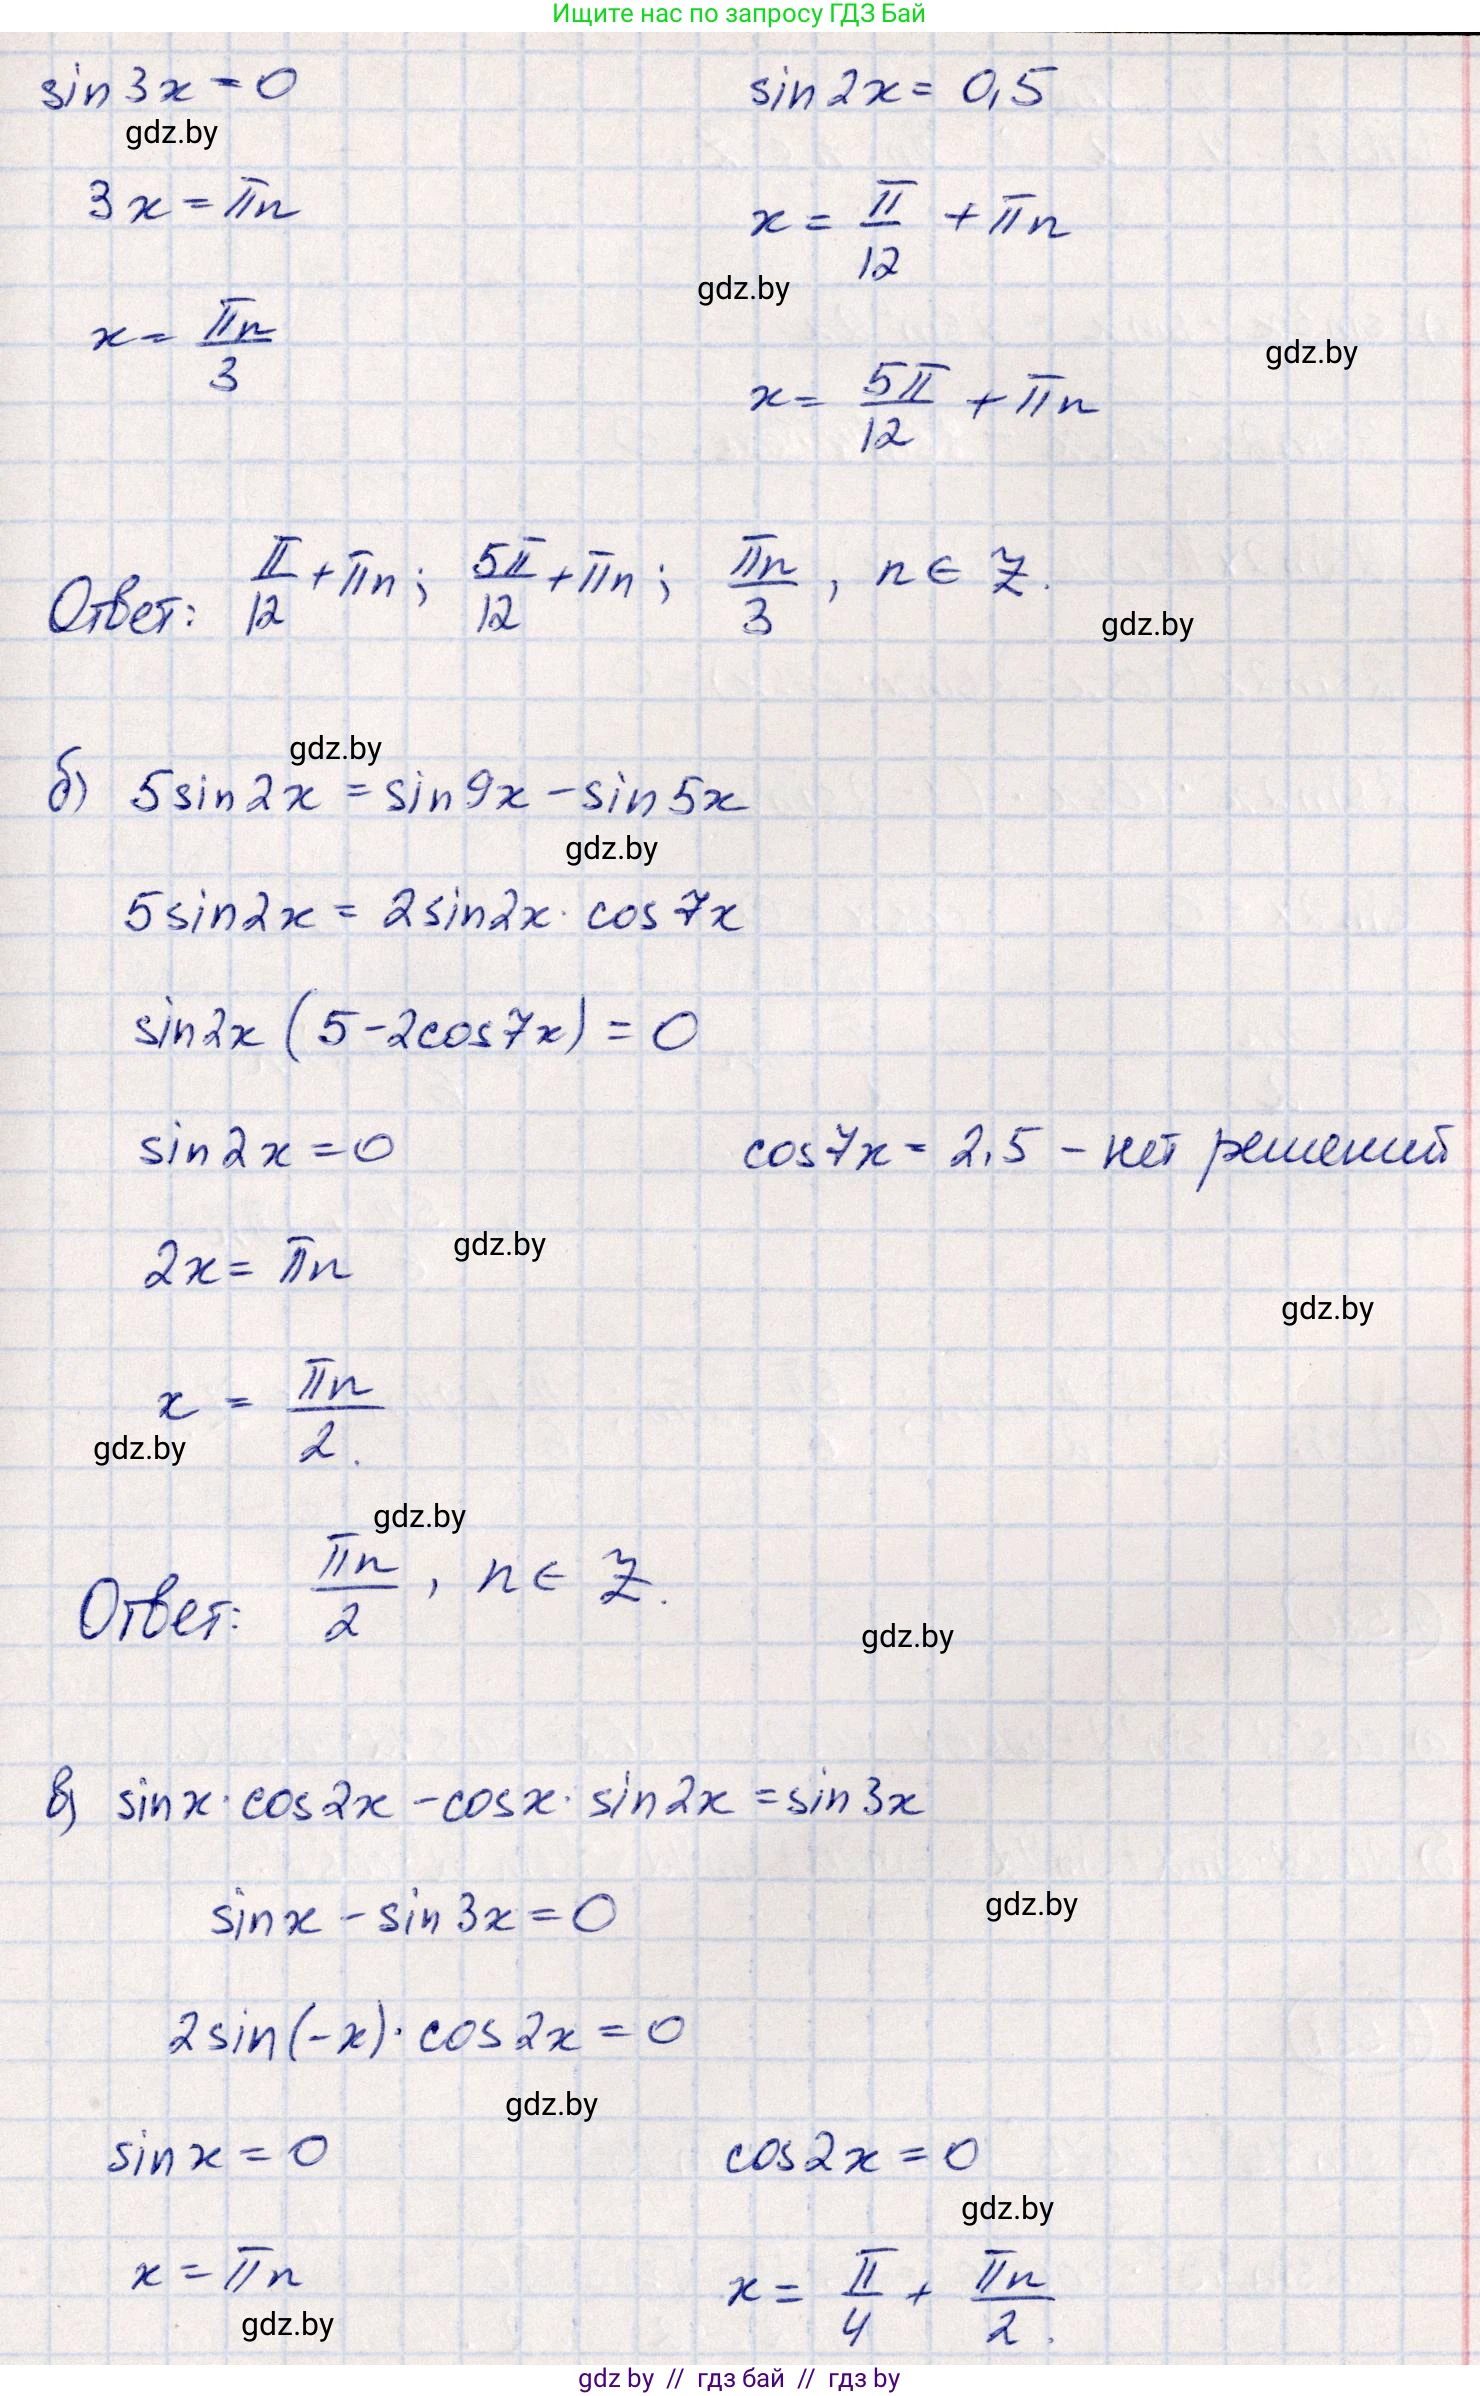 Ищите нас по запросу ГДЗ Бай
sin3x = 0    sin2x = 0,5
gdz.by
3x = πn    x = π/12 + πn
gdz.by
x = πn/3    gdz.by
x = 5π/12 + πn
Ответ: π/12 + πn; 5π/12 + πn; πn/3, n ∈ Z.
gdz.by
gdz.by
б) 5sin2x = sin9x - sin5x
gdz.by
5sin2x = 2sin2x · cos7x
sin2x (5 - 2cos7x) = 0
sin2x = 0    cos7x = 2,5 - нет решений
gdz.by
2x = πn
gdz.by
x = πn/2.
gdz.by
gdz.by
Ответ: πn/2, n ∈ Z.
gdz.by
в) sinx · cos2x - cosx · sin2x = sin3x
gdz.by
sinx - sin3x = 0
2sin(-x) · cos2x = 0
gdz.by
sinx = 0    cos2x = 0
gdz.by
x = πn    x = π/4 + πn/2.
gdz.by
gdz by // гдз бай // гдз by